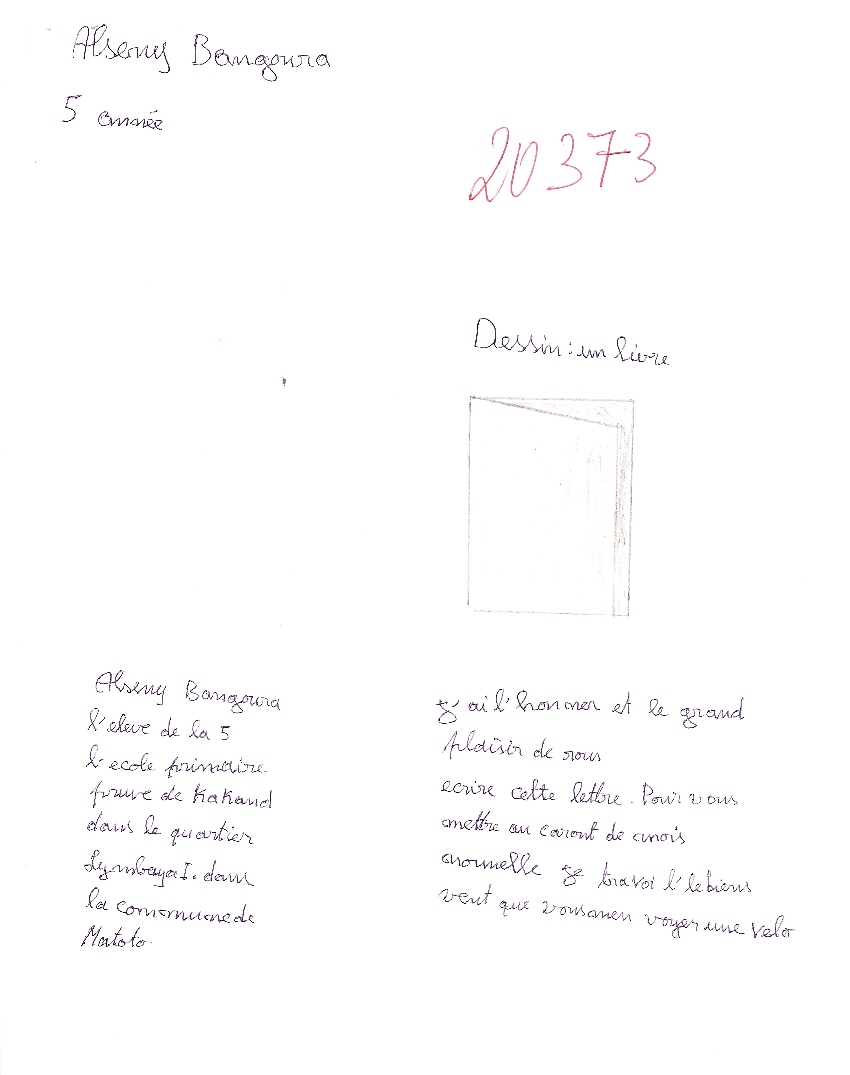 Alseny Bangoura
5 année
20373
Dessin: un livre
Alseny Bangoura
l'eleve de la 5
l'ecole primaire
pruve de Kakand
dans le quartier
Symbaya I. dans
la commune de
Matoto.
J'ai l'honner et le grand
plaisir de vous
ecrire cette lettre. Pour vous
mettre au caront de mois
nournelle je travoi l'lebiens
veut que vousmen voyer une velo